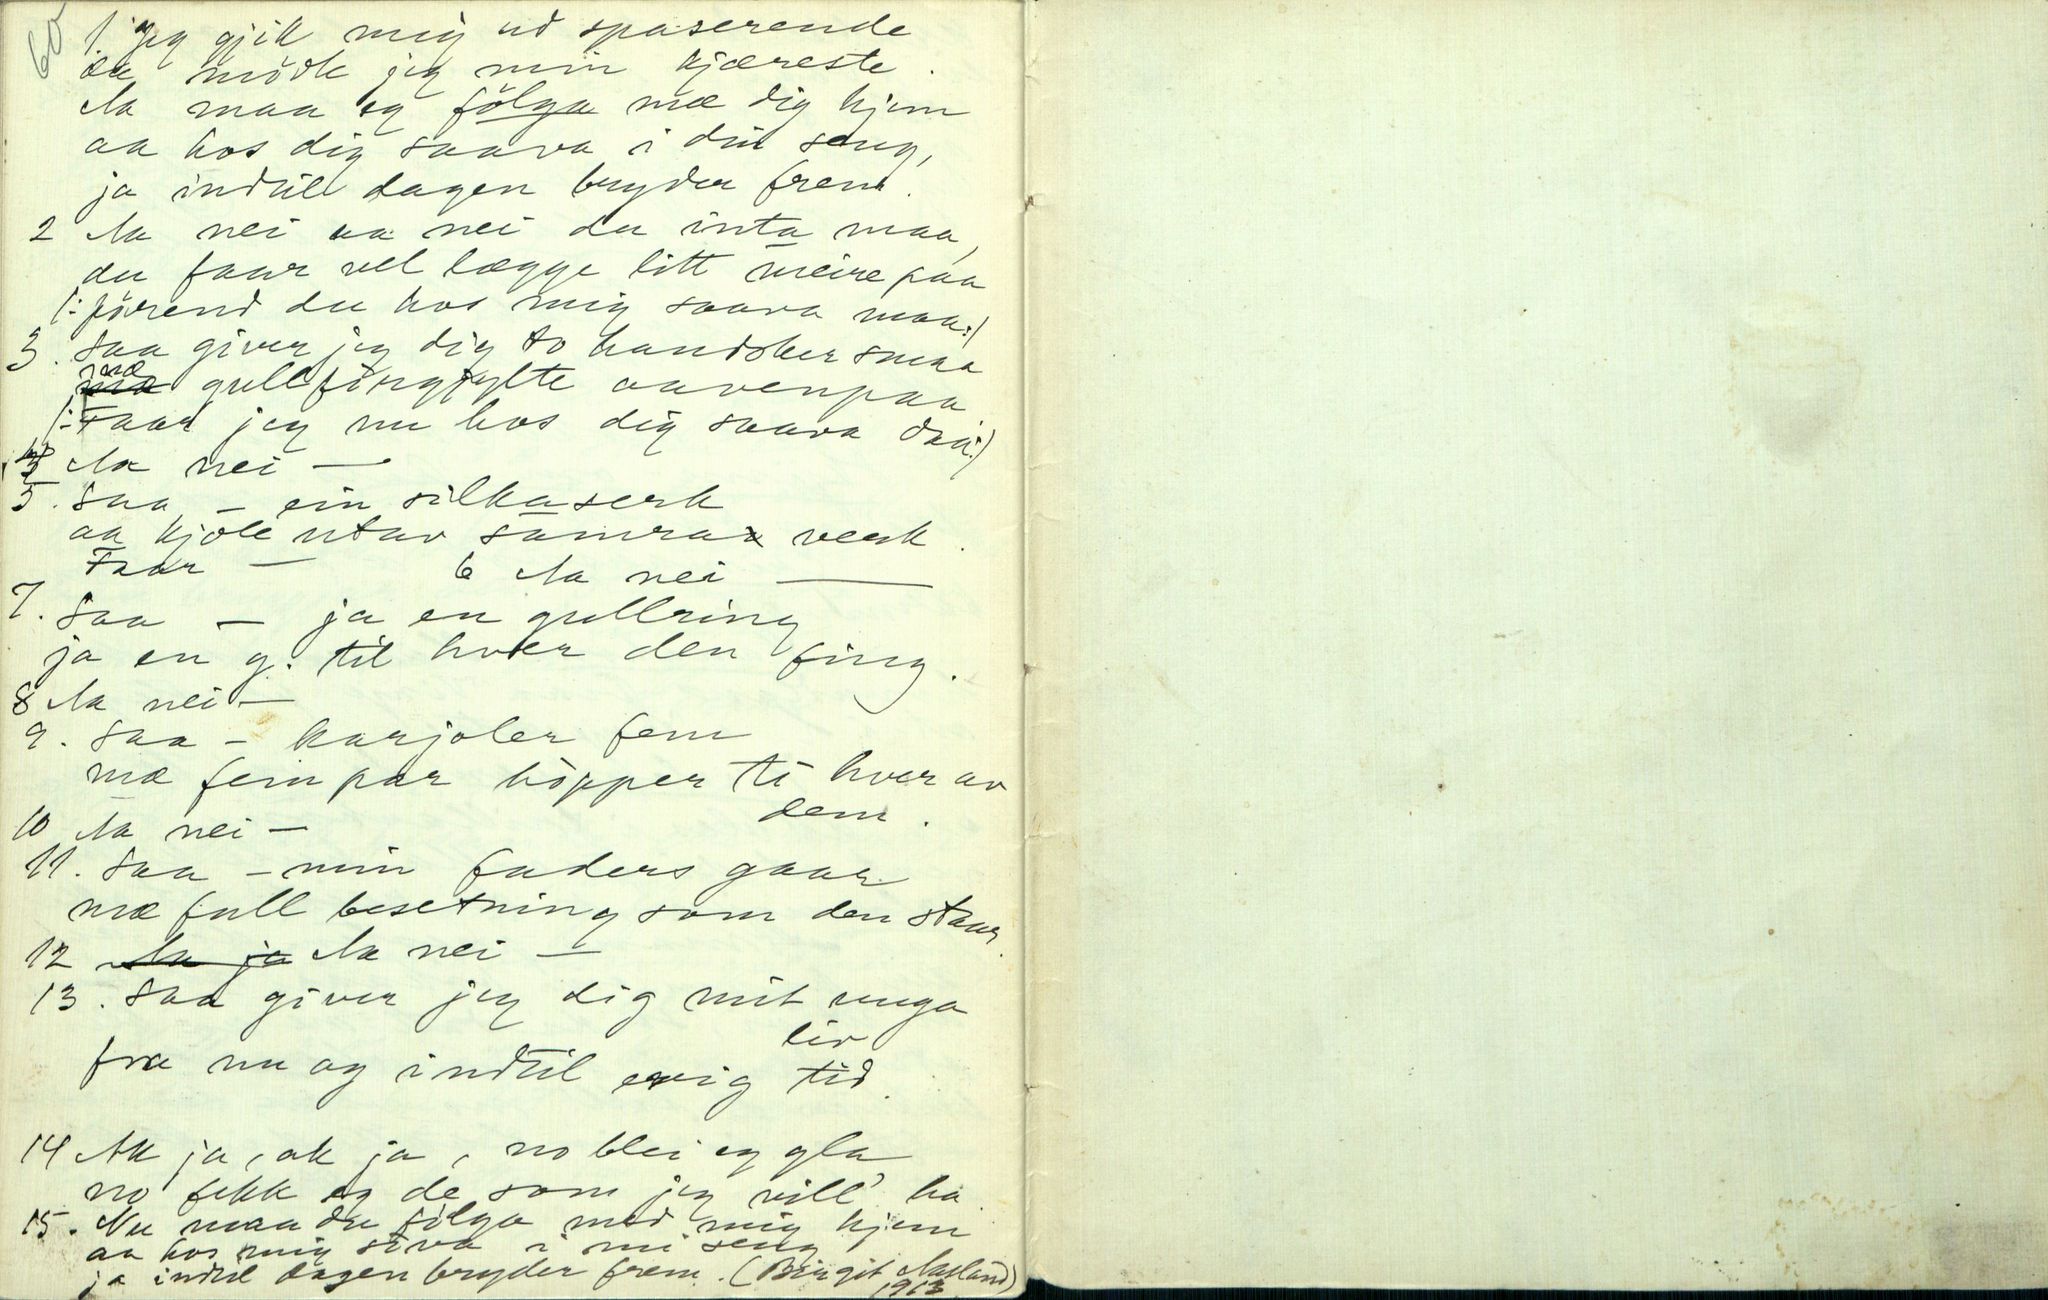 60
1. Jeg gjik mig ud spaserende
da mödte jeg min kjæreste.
Aa maa eg fölga mæ dig hjem
aa hos dig saava i din seng,
ja indtil dagen bryder frem.
2 Aa nei aa nei du inta maa,
du faar vel lægge litt meire paa
/: förend du hos mig saava maa :/
3. Saa giver jeg dig to handsker smaa
mæ gullforgylte aavenpaa
/: Faar jeg nu hos dig saava daa :/
4 Aa nei —
5. Saa — ein silkaserk
aa kjole utav samra verk.
Faar — 6 Aa nei —
7. Saa — ja en gullring
ja en g. til hver den fing.
8 Aa nei —
9. Saa — karjoler fem
mæ fem par höpper ti hver av
dem.
10 Aa nei —
11. Saa — min faders gaar
mæ full besetning som den staar.
12 Aa ja Aa nei —
13. Saa giver jeg dig mit unga
liv
fra nu og indtil evig tid.
14 Ak ja, ak ja, no blei eg gla,
no fekk eg de som jeg vill' ha
15. Nu maa du fölga med mig hjem
aa hos mig sova i mi seng
ja indtil dagen bryder frem. (Birgit Aasland)
1913